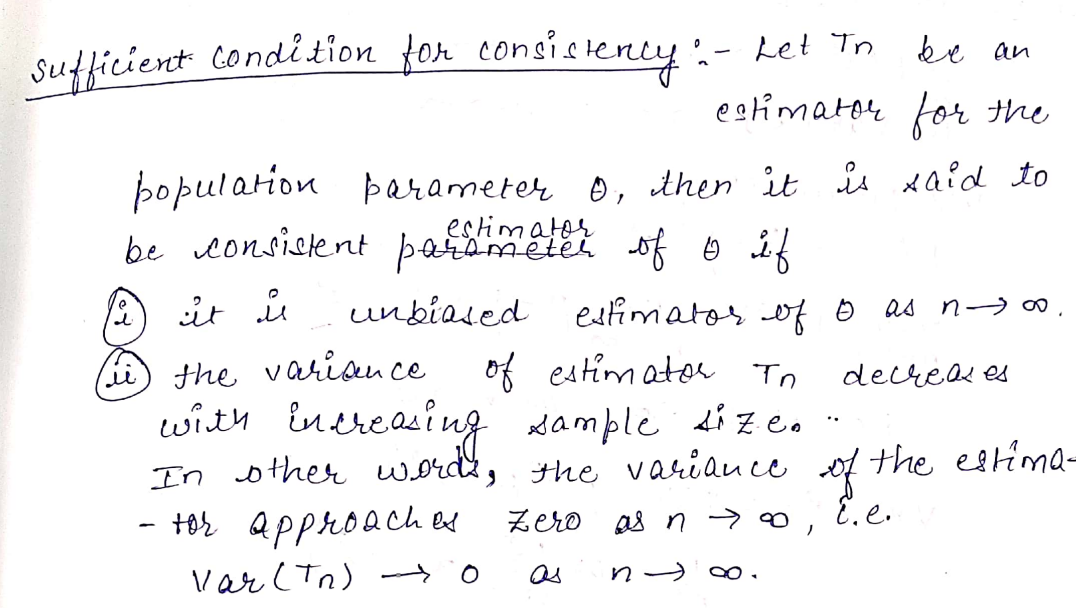 Sufficient condition for consistency :- Let Tn be an
estimator for the
population parameter θ, then it is said to
be consistent estimator of θ if
(i) it is unbiased estimator of θ as n→∞.
(ii) the variance of estimator Tn decreases
with increasing sample size.
In other words, the variance of the estima-
- tor approaches zero as n → ∞, i.e.
Var(Tn) → 0 as n → ∞.